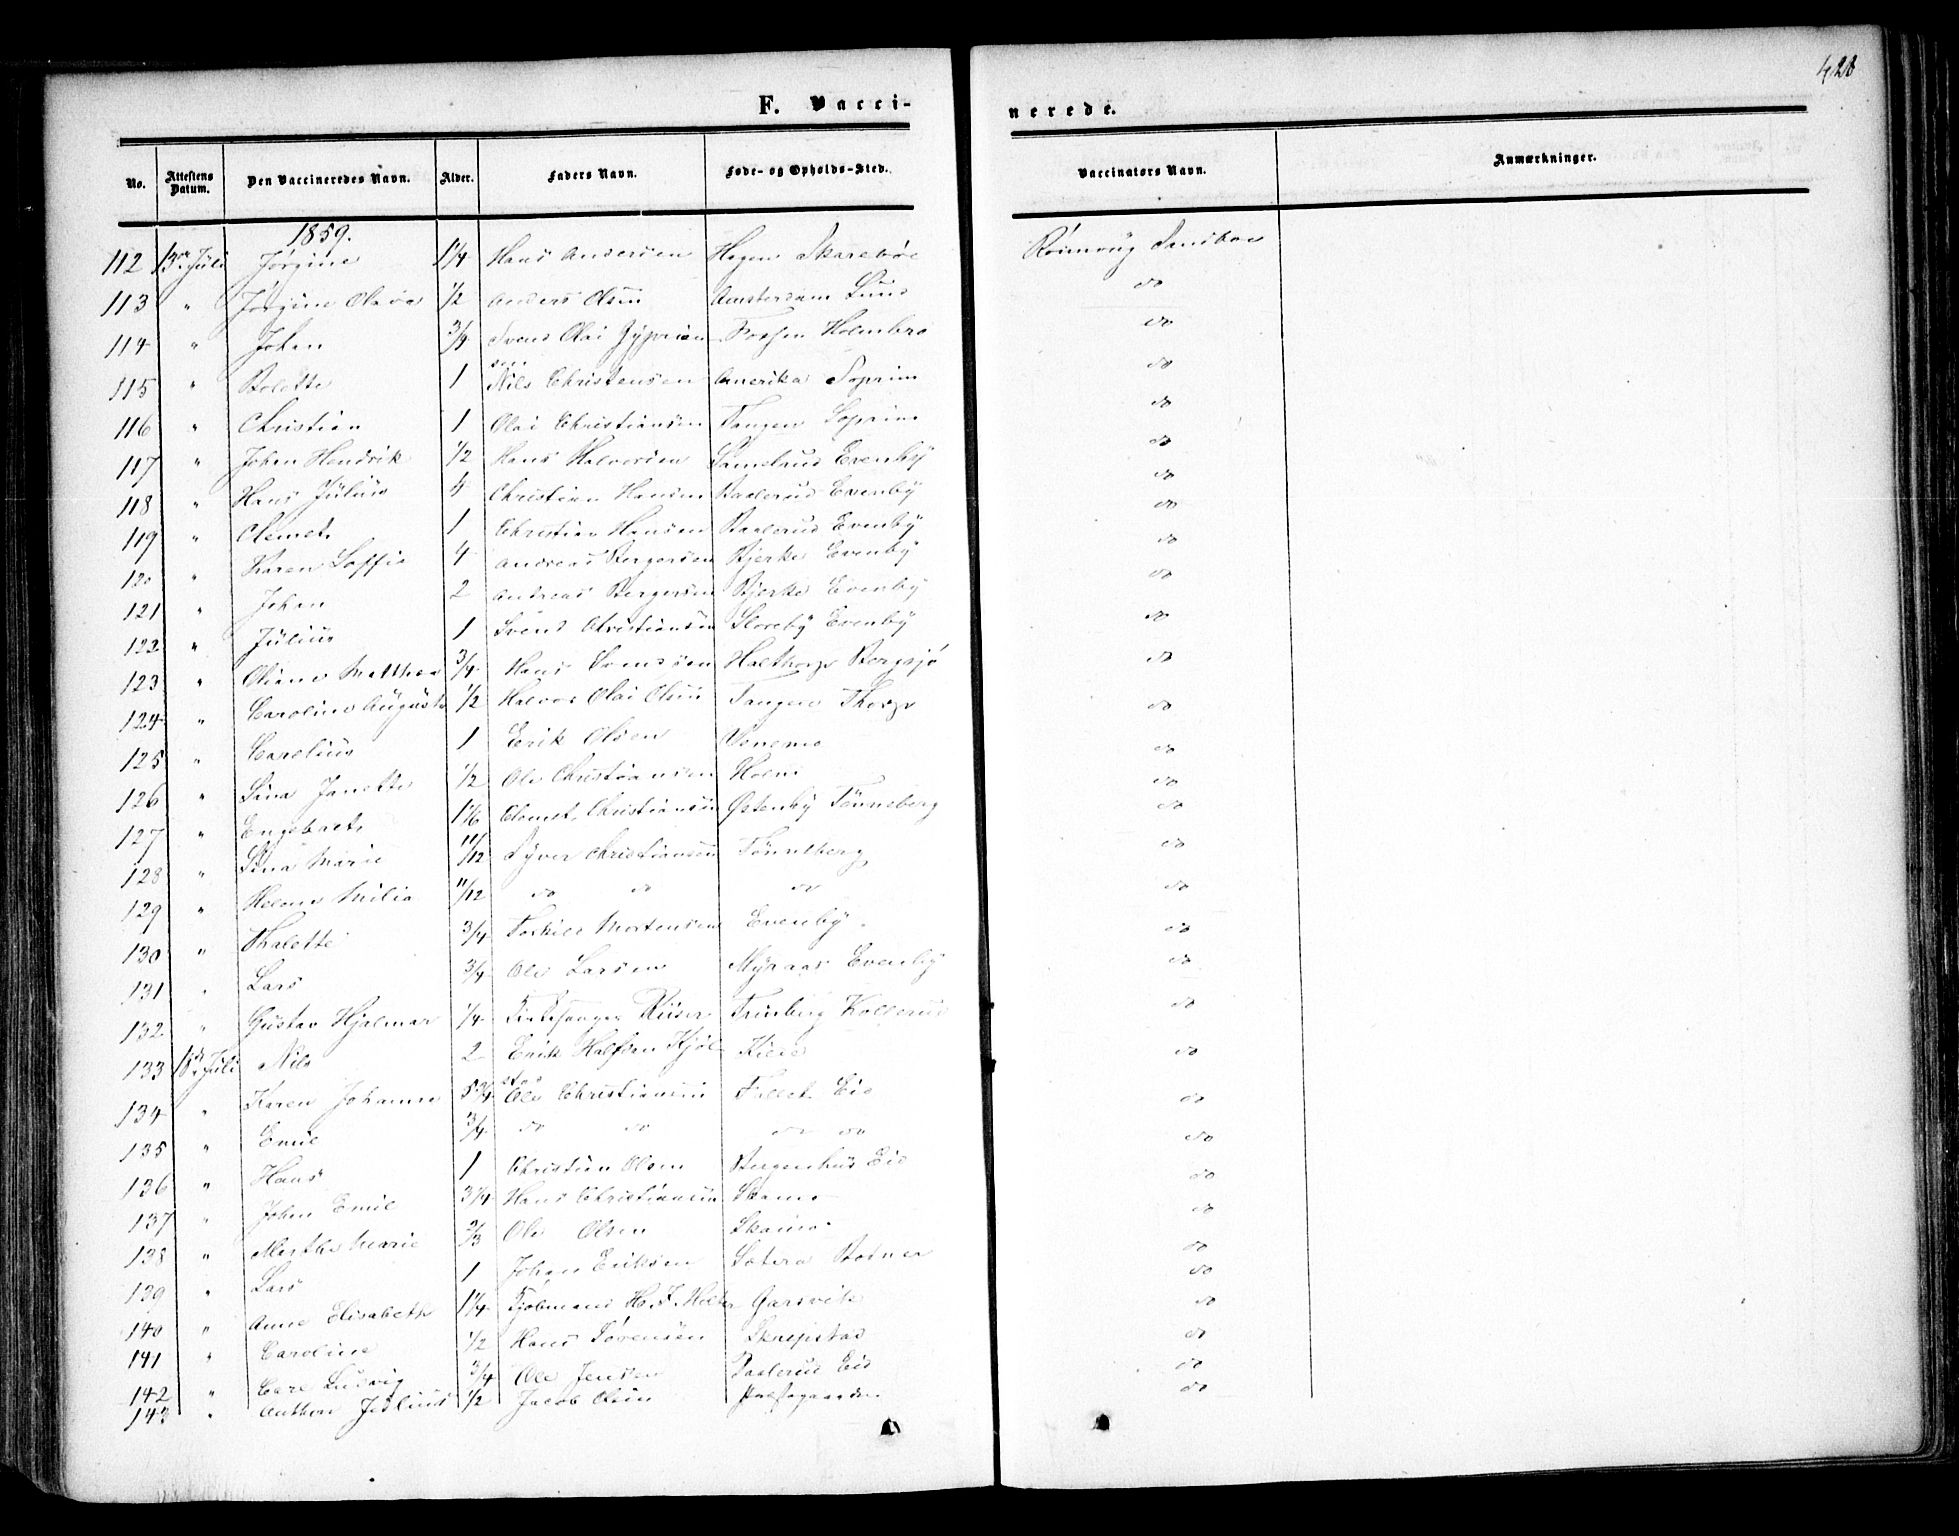 428
F. Vacci-
nerede.
No. Attestens Datum. Den Vaccineredes Navn. Alder. Faders Navn. Føde- og Opholds-Sted. Vaccinators Navn. Anmærkninger.
1859.
112 13de Juli Jørgine 1 1/4 Hans Andersen Hagen Skarebøe
113 " Jørgine 1/2 Anders Olsen Amsterdam do
114 " Johan Svend Olai Holmbro do
sen
115 " Bolette 1 Nils Christensen Amerika Soprim do
116 " Christian 1 Olai Christiansen Tangen Soprim do
117 " Johan Hendrik 1/2 Hans Halvorsen Evenby do
118 " Hans Julius 4 Christian Hansen Baalerud Evenby do
119 " Clemet 1 Christian Hansen Baalerud Evenby do
120 " Karen Soffie 4 Andreas Bergersen Bjerke Evenby do
121 " Johan 2 Andreas Bergersen Bjerke Evenby do
122 " Julius 1 Svend Christiansen Sloreby Evenby do
123 " Oliane Mathea 3/4 Hans Svensen Bergsjø do
124 " Caroline Auguste 1/2 Halvor Olai Olsen Tangen Thorp do
125 " Carelius 1 Erik Olsen Venemo do
126 " Sina Janette 1/2 Ole Christiansen Holm do
127 " Engebret 1 1/6 Clemet Christiansen Østenby Tønneberg do
128 " Sina Marie 11/12 Syver Christiansen Tønneberg do
129 " Helene Milia 11/12 do do do do
130 " Thalette 3/4 Torkild Mortensen Evenby. do
131 " Lars 3/4 Ole Larsen Myraas Evenby do
132 " Gustav Hjalmar 1/4 Kirkesanger Riiser Kollerud do
133 18de Juli Nils 2 Erik Halfsen Kjøl- do
stad
134 " Karen Johanne 5 3/4 Ole Christiansen Eid do
135 " Emil 3/4 do do do do do
136 " Hans 1 Christian Olsen Bergenhus Eid do
137 " Johan Emil 3 1/4 Hans Christiansen Skamo do
138 " Marthe Marie 2/3 Ole Olsen do
139 " Lars 1 Johan Eriksen Sætera Botner do
140 " Anne Elisabeth 1 1/4 Garsvik do
141 " Caroline 1/2 Hans Sørensen Skrepstad do
142 " Carl Ludvig 3/4 Ole Jensen Eid do
143 " Anthon Julius 1/2 Jacob Olsen Præstegaarden do